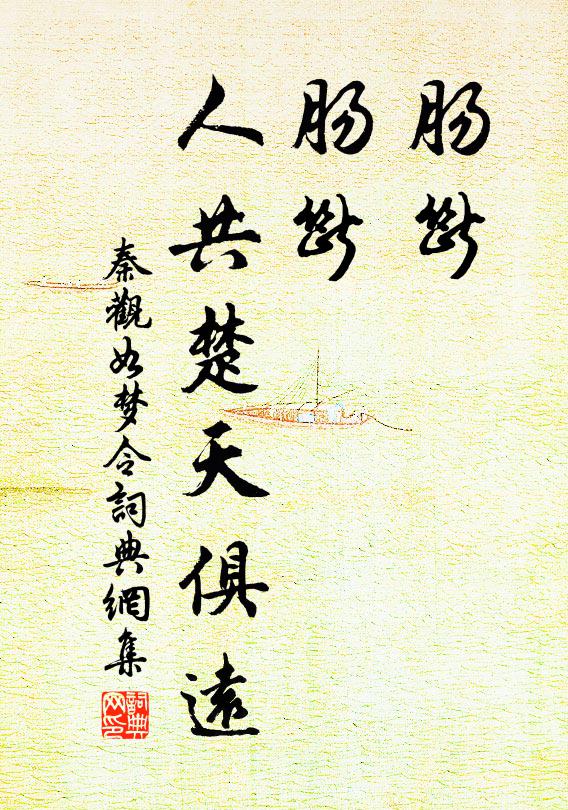 肠断
肠断
人共楚天俱遠
秦觀如梦令詞典網集
詞典
网印